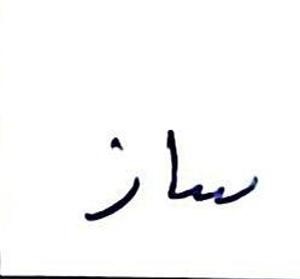 ساز